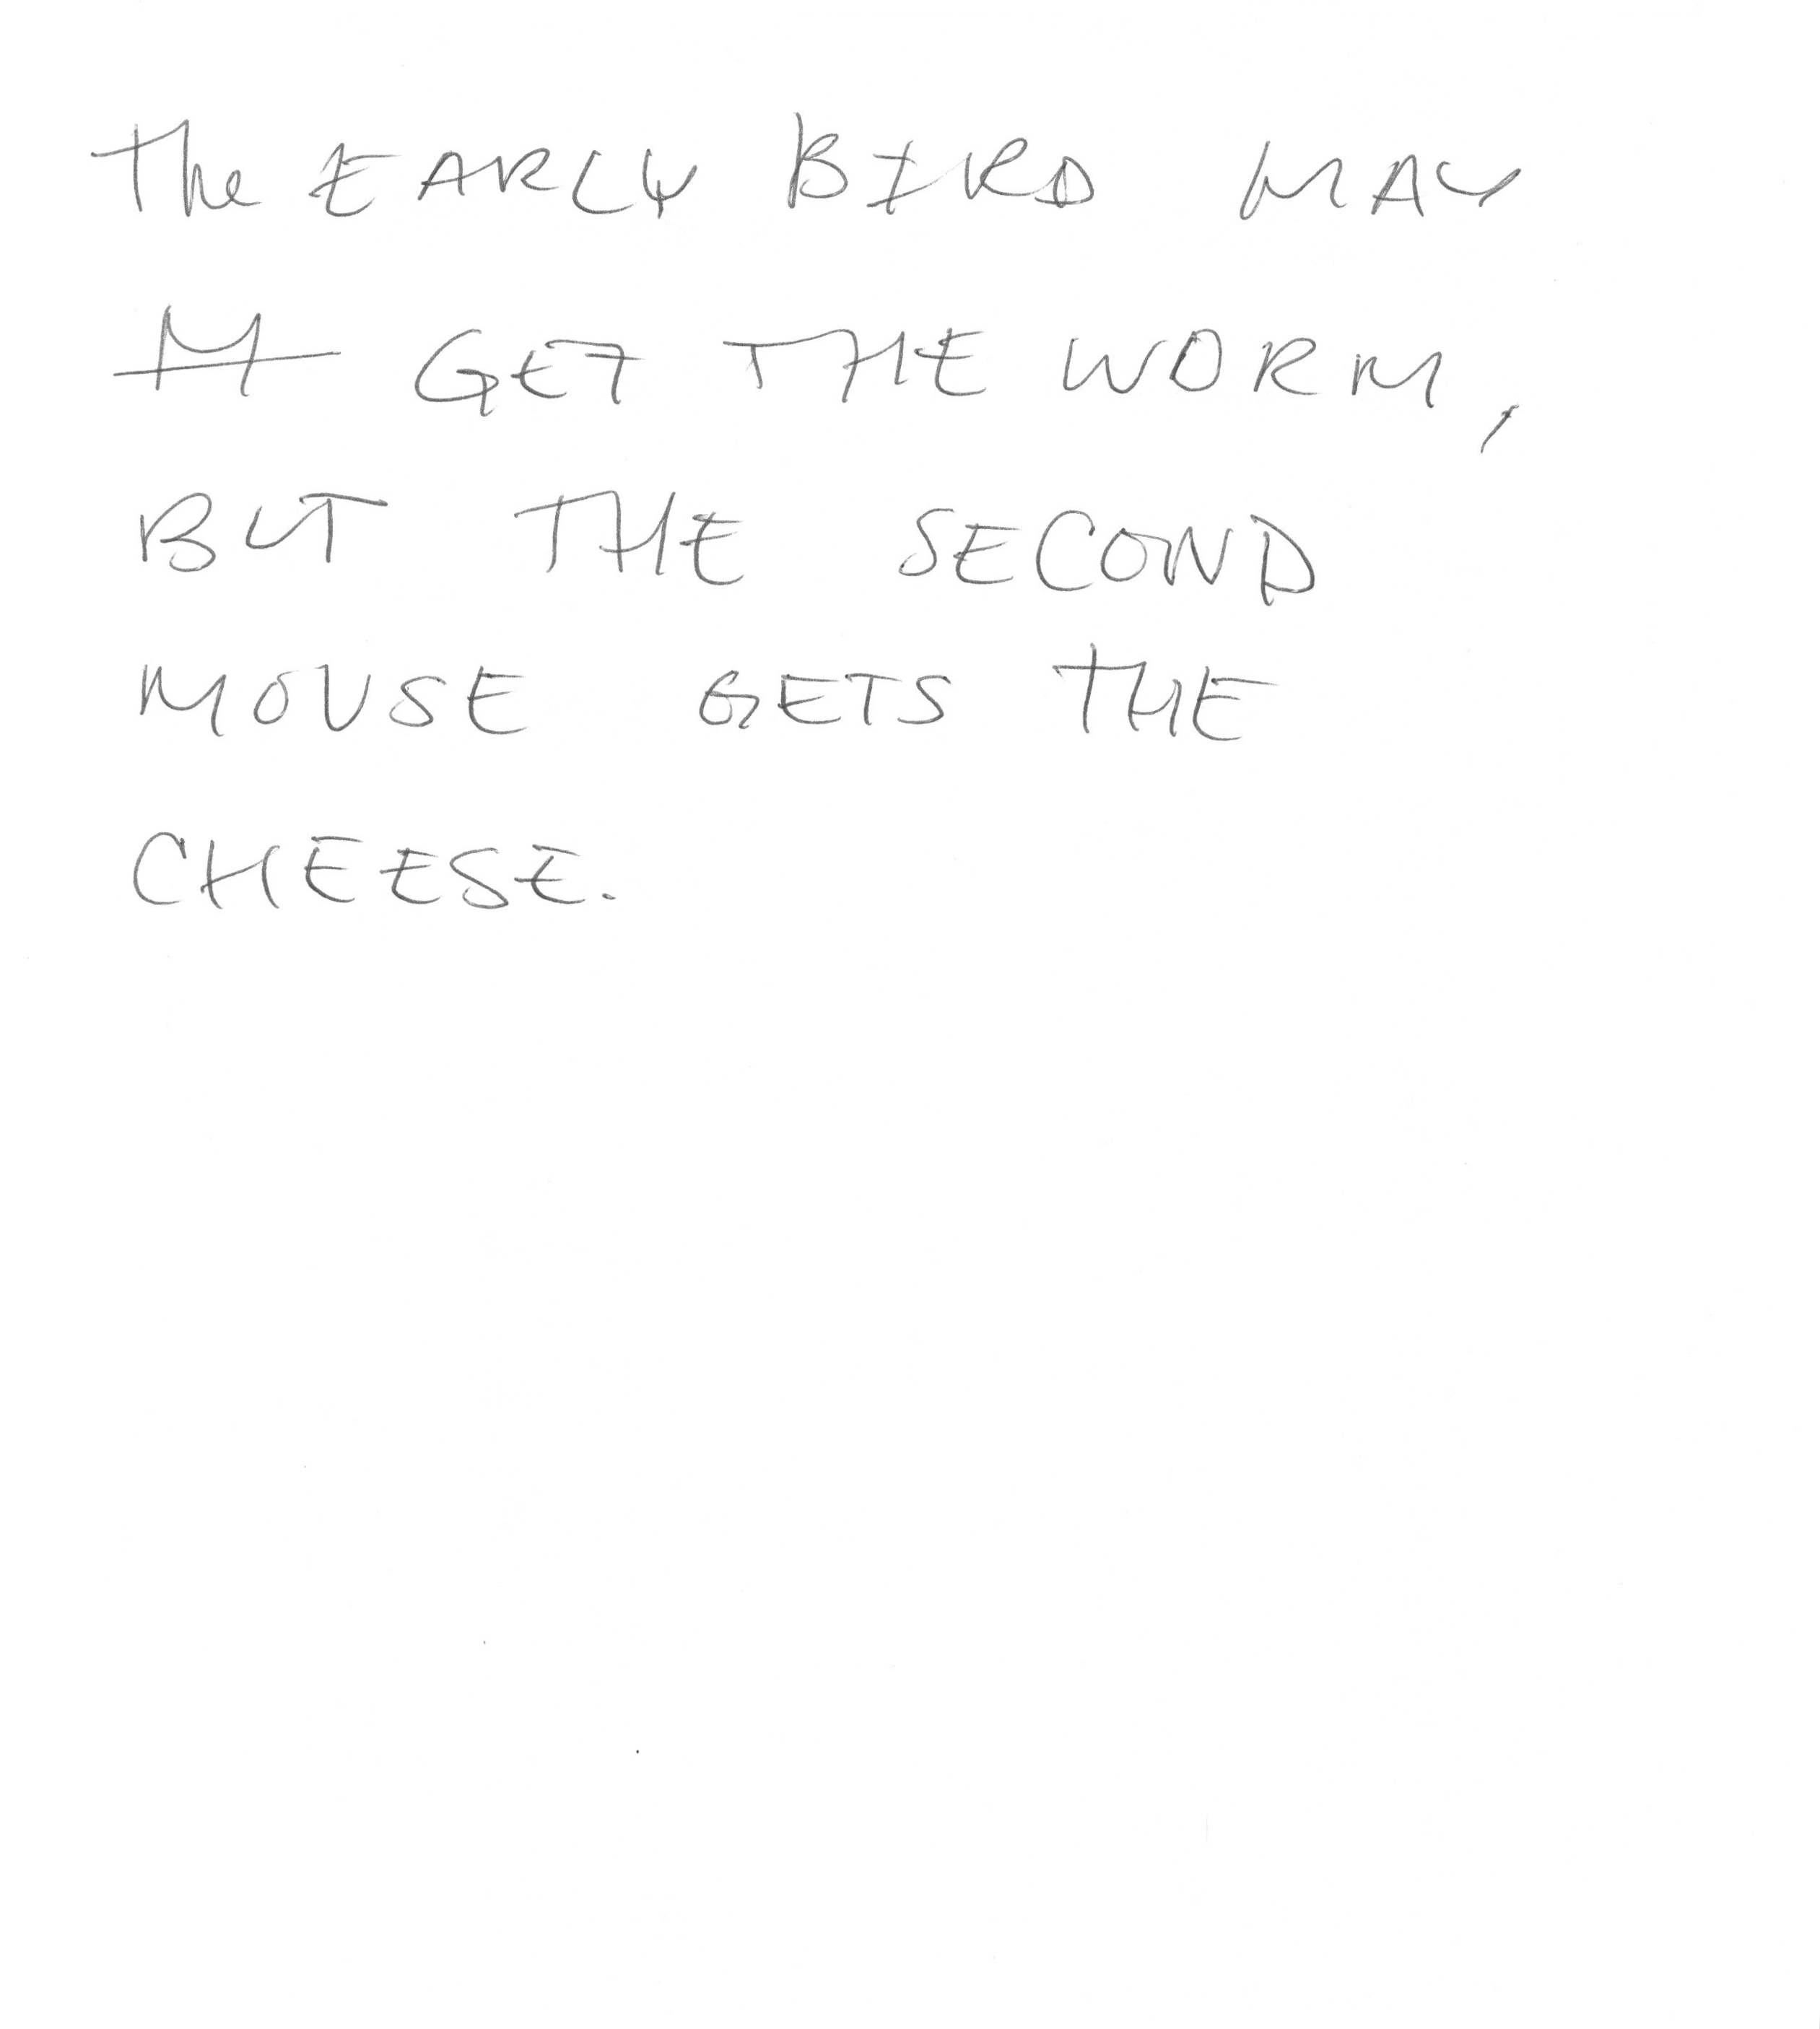 The EARLY BIRD MAY
M GET THE WORM,
BUT THE SECOND
MOUSE GETS THE
CHEESE.